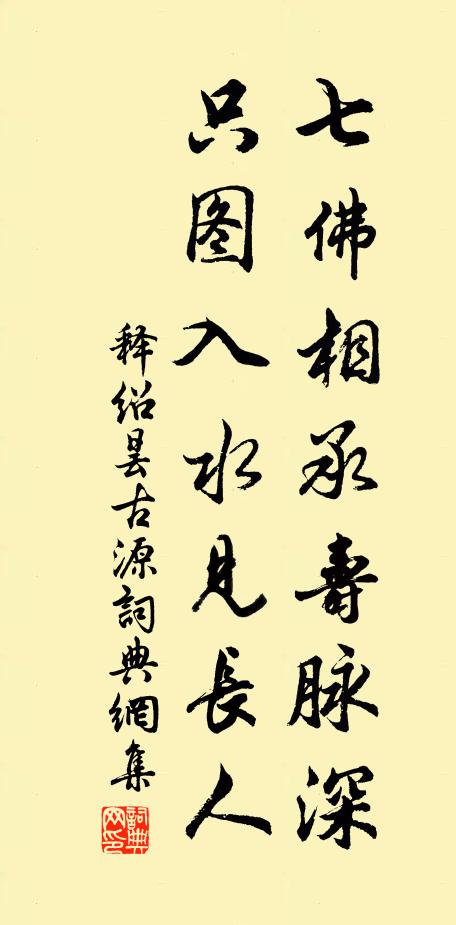 七佛相承壽脉深
只图入水見長人
释绍昙古源詞典網集
詞典网印